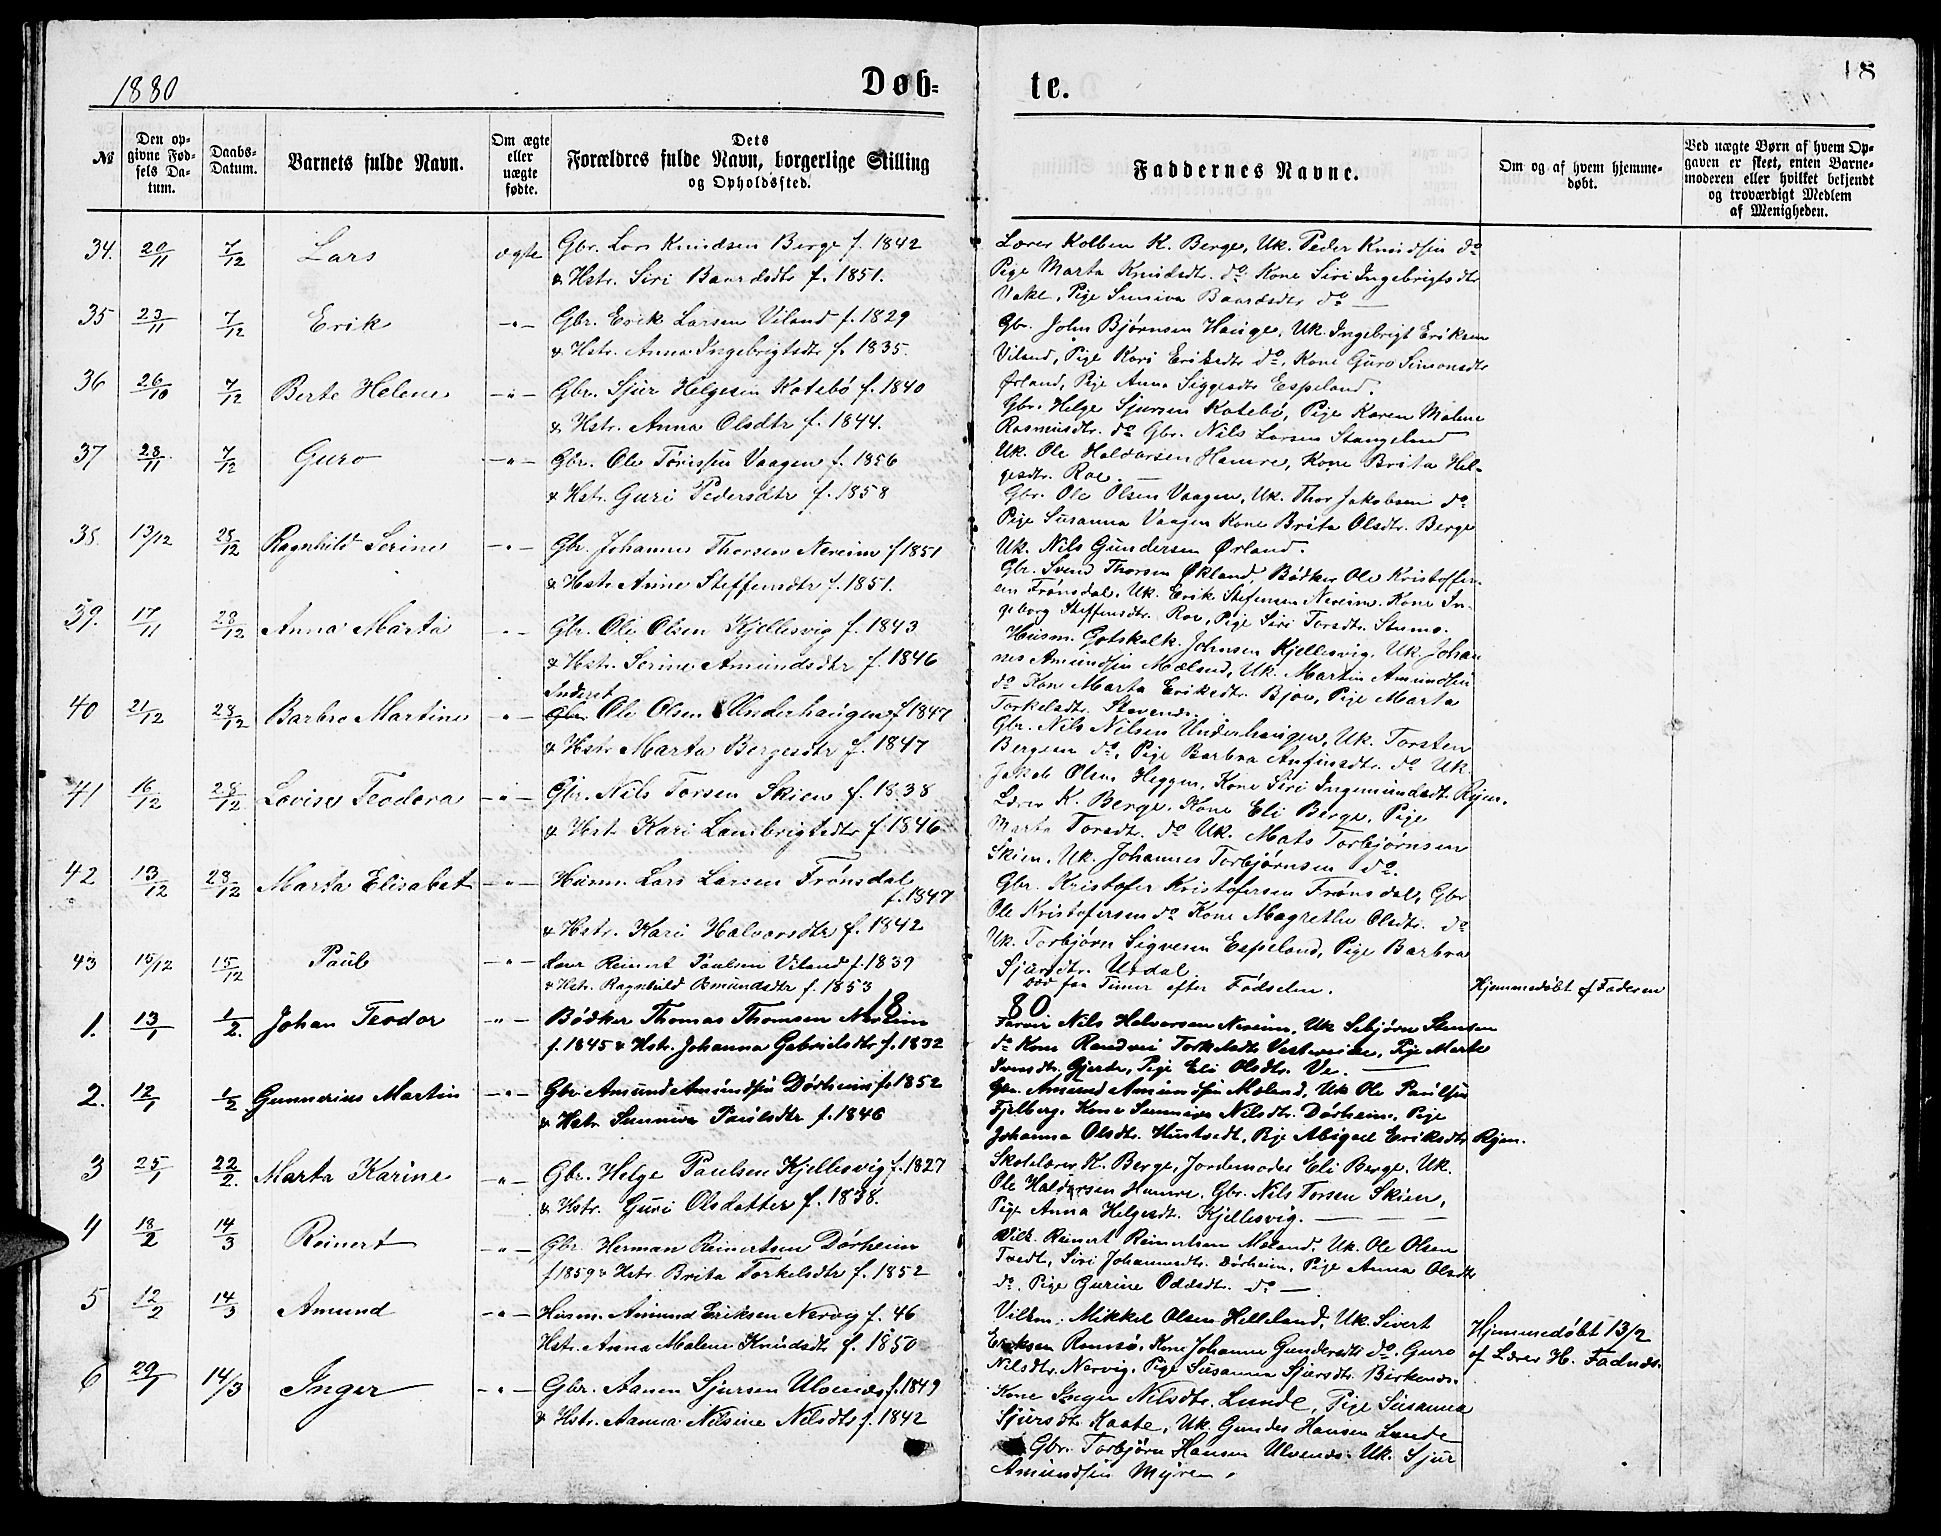 1880
Døb=
te.
18
№
Den op-
givne Fød-
sels Da-
tum.
Daabs-
Datum.
Barnets fulde Navn.
Om ægte
eller
uægte
fødte.
Dets
Forældres fulde Navn, borgerlige Stilling
og Opholdssted.
Faddernes Navne.
Om og af hvem hjemme-
døbt.
Ved uægte Børn af hvem Op-
gaven er skeet, enten Barne-
moderen eller hvilket bekjendt
og troværdigt Medlem
af Menigheden.
34. 20/11 7/12 Lars ægte Gbr. Lars Knudsen Berge f. 1842
& Hstr. Siri Baardsdtr f. 1851.
Lærer Kolben K. Berge, Uk. Peder Knudsen do
Pige Marta Knudsdtr. do Kone Siri Ingebrigtsdtr
Vake, Pige Sunniva Baardsdtr do —
35 23/11 7/12 Erik -"- Gbr. Erik Larsen Viland f. 1829
& Hstr. Anna Ingebrigtsdtr f. 1835.
Gbr. John Bjørnsen Hauge, Uk. Ingebrigt Eriksen
Viland, Pige Kari Eriksdtr do, Kone Guro Simonsdtr
Ørland, Pige Anna Siggesdtr Espeland.
36 26/10 7/12 Berte Helene -"- Gbr. Sjur Helgesen Katebø f. 1840
& Hstr. Anna Olsdtr f. 1844.
Gbr. Helge Sjursen Katebø, Pige Karen Malene
Rasmusdtr. do Gbr. Nils Larsen Stangeland
Uk. Ole Haldorsen Hamre, Kone Brita Hel-
gesdtr. Roe. —
37 28/11 7/12 Guro -"- Gbr. Ole Tørissen Vaagen f. 1856
& Hstr. Guri Pedersdtr f. 1858
Gbr. Ole Olsen Vaagen, Uk. Thor Jakobsen do
Pige Susanna Vaagen Kone Brita Olsdtr. Berge
Uk. Nils Gundersen Ørland.
38. 13/12 28/12 Ragnhild Serine -"- Gbr. Johannes Thorsen Nereim f 1851
& Hstr. Anne Steffensdtr f. 1851.
Gbr. Svend Thorsen Økland, Bødker Ole Kristoffer-
sen Frønsdal, Uk. Erik Stefensen Nereim. Kone In-
geborg Steffensdtr. Roe, Pige Siri Torsdtr. Stumo.
39. 17/11 28/12 Anna Marta -"- Gbr. Ole Olsen Kjellesvig f. 1843
& Hstr. Serine Amundsdtr f. 1846
Husm. Gotskalk Johnsen Kjellesvig, Uk. Johan
nes Amundsen Mæland, Uk. Martin Amundsen
do Kone Marta Eriksdtr. Bjoe, Pige Marta
Torkelsdtr. Stavenes.
40 21/12 28/12 Barbro Martine -"- Inderst
Gbr. Ole Olsen Underhaugen f 1847
& Hstr. Marta Bergesdtr f. 1847
Gbr. Nils Nilsen Underhaugen, Uk. Torsten
Bergsen do, Pige Barbra Anfinsdtr. do Uk.
Jakob Olsen Heggen, Kone Siri Ingemundsdt. Rijen.
41 16/12 28/12 Lovise Teodora -"- Gbr. Nils Torsen Skien f. 1838
& Hstr. Kari Lambrigtsdtr f. 1846.
Lærer K. Berge, Kone Eli Berge, Pige
Marta Torsdtr. do Uk. Mats Torbjørnsen
Skien, Uk. Johannes Torbjørnsen do.
42 13/12 28/12 Marta Elisabet -"- Husm. Lars Larsen Frønsdal
f. 1847
& Hstr. Kari Halvorsdtr f. 1842
Gbr. Kristofer Kristofersen Frønsdal, Gbr
Ole Kristofersen do Kone Magrethe Olsdtr. do
Uk. Torbjørn Sigvesen Espeland, Pige Barbra
Sjursdtr. Utdal.
43 15/12 15/12 Paul -"- Lærer Reinert Paulsen Viland f. 1839
& Hstr. Ragnhild Osmundsdtr f. 1853
død faa Timer efter Fødselen.
Hjemmedøbt af Faderen
18
80
1. 13/1 1/2. Johan Teodor -"- Bødker Thomas Thomsen Nereim
f. 1845 & Hstr. Johanna Gabrielsdtr f. 1832
Farver Nils Halversen Nereim, Uk Sebjørn Stensen
do Kone Randvei Torkelsdtr Vestervike, Pige Marta
Svendtr. Gjerde, Pige Eli Olsdtr. Ve. —
2. 12/1 1/2 Gunnerius Martin -"- Gbr Amund Amundsen Dørheim f. 1852
& Hstr. Sunniva Paulsdtr f. 1846
Gbr. Amund Amundsen Mæland, Uk Ole Paulsen
Fjelberg, Kone Sunniva Nilsdtr. Dørheim, Pige
Johanna Olsdtr. Hustvedt, Pige Abigael Eriksdtr Rijen.
3 25/1 22/2. Marta Karine -"- Gbr. Helge Paulsen Kjellesvig f. 1827
& Hstr. Guri Olsdatter f. 1838.
Skolelærer K. Berge, Jordemoder Eli Berge, Uk.
Ole Haldorsen Hamre, Gbr. Nils Torsen Skien,
Pige Anna Helgesdt. Kjellesvig. —
4 18/2 14/3 Reinert -"- Gbr. Herman Reinertsen Dørheim
f 1859 & Hstr. Brita Torkelsdtr f. 1852
Vilk. Reinert Reinertsen Mæland, Uk. Ole Olsen
Tvedt, Siri Johannesdtr. Dørheim, Pige Anna Olsdtr
do. Pige Gurine Oddsdtr. do —
5 12/2 14/3 Amund -"- Husm. Amund Eriksen Nervig f. 46
Hstr. Anna Malene Knudsdt f. 1850
Vilkm. Mikkel Olsen Helleland, Uk. Sivert
Eriksen Romsø, Kone Johanne Gundersdt do. Guro
Nilsdtr. Nervig, Pige Susanna Sjursdt. Birkenes.
Hjemmedøbt 13/2
af Lærer H. Fadnæs.
6 29/1 14/3 Inger -"- Gbr. Aanen Sjursen Ulvenes f. 1849
& Hstr. Aanna Nilsine Nilsdtr f. 1842
Kone Inger Nilsdtr. Lunde, Pige Susanna
Sjursdtr. Kaate, Uk. Gundes Hansen Lunde
Gbr. Torbjørn Hansen Ulvenes. Uk. Sjur
Amundsen Myren.